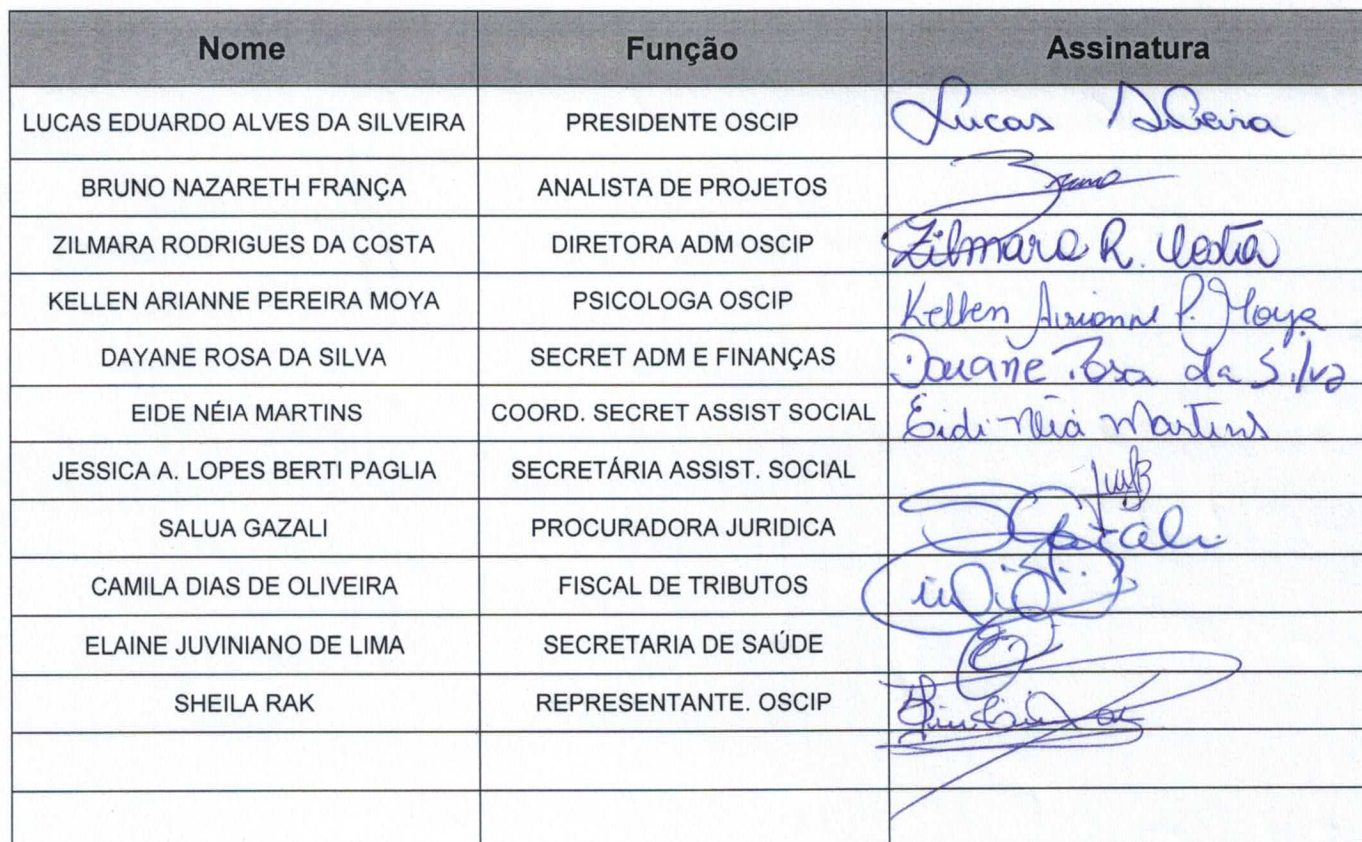 Nome Função Assinatura
LUCAS EDUARDO ALVES DA SILVEIRA PRESIDENTE OSCIP Lucas Silveira
BRUNO NAZARETH FRANÇA ANALISTA DE PROJETOS Bruno
ZILMARA RODRIGUES DA COSTA DIRETORA ADM OSCIP Zilmara R. Costa
KELLEN ARIANNE PEREIRA MOYA PSICOLOGA OSCIP Kellen Arianne P. Moya
DAYANE ROSA DA SILVA SECRET ADM E FINANÇAS Dayane Rosa da Silva
EIDE NÉIA MARTINS COORD. SECRET ASSIST SOCIAL Eidi Néia Martins
JESSICA A. LOPES BERTI PAGLIA SECRETÁRIA ASSIST. SOCIAL
SALUA GAZALI PROCURADORA JURIDICA
CAMILA DIAS DE OLIVEIRA FISCAL DE TRIBUTOS
ELAINE JUVINIANO DE LIMA SECRETARIA DE SAÚDE
SHEILA RAK REPRESENTANTE. OSCIP